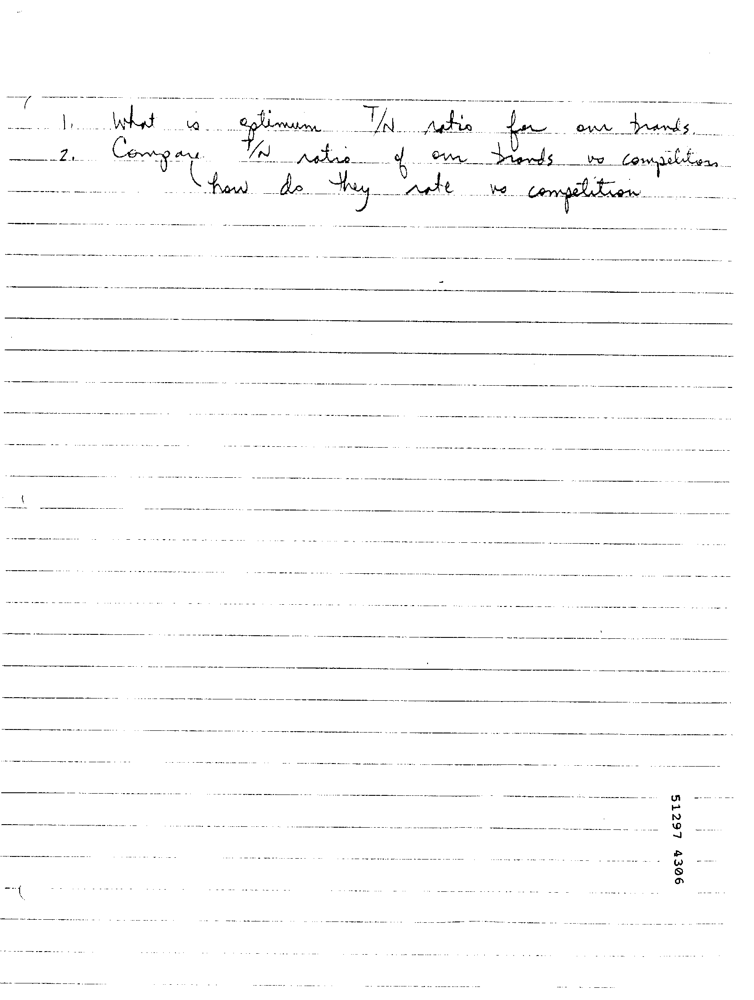 1. What is optimum T/N ratio for our brands.
2. Compare T/N ratio of our brands vs competitors
(how do they rate vs competition
51297 4306